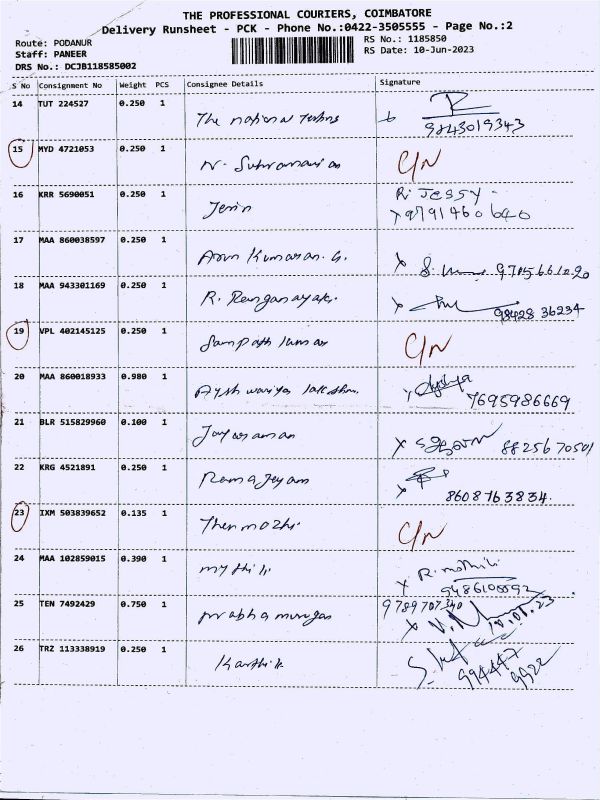 THE PROFESSIONAL COURIERS, COIMBATORE
Delivery Runsheet - PCK - Phone No.:0422-3505555 - Page No.:2
Route: PODANUR
Staff: PANEER
DRS No.: DCJB118585002
RS No.: 1185850
RS Date: 10-Jun-2023
S No Consignment No Weight PCS Consignee Details Signature
14 TUT 224527 0.250 1 The national
9843019343
15 MYD 4721053 0.250 1 N. C/N
16 KRR 5690051 0.250 1 Jenin R. Jessy
9791460640
17 MAA 860038597 0.250 1 Arun Kumaran. G.
18 MAA 943301169 0.250 1 R. Ranganayaki.
98428 36234
19 VPL 402145125 0.250 1 Sampath kumar C/N
20 MAA 860018933 0.980 1
7695986669
21 BLR 515829960 0.100 1 Jayaraman 8825670501
22 KRG 4521891 0.250 1 Ramajeyam
8608763834.
23 IXM 503839652 0.135 1 Thenmozhi C/N
24 MAA 102859015 0.390 1 mythili R.
9486105592
25 TEN 7492429 0.750 1 9789707340
26 TRZ 113338919 0.250 1 Karthik
994447
9922